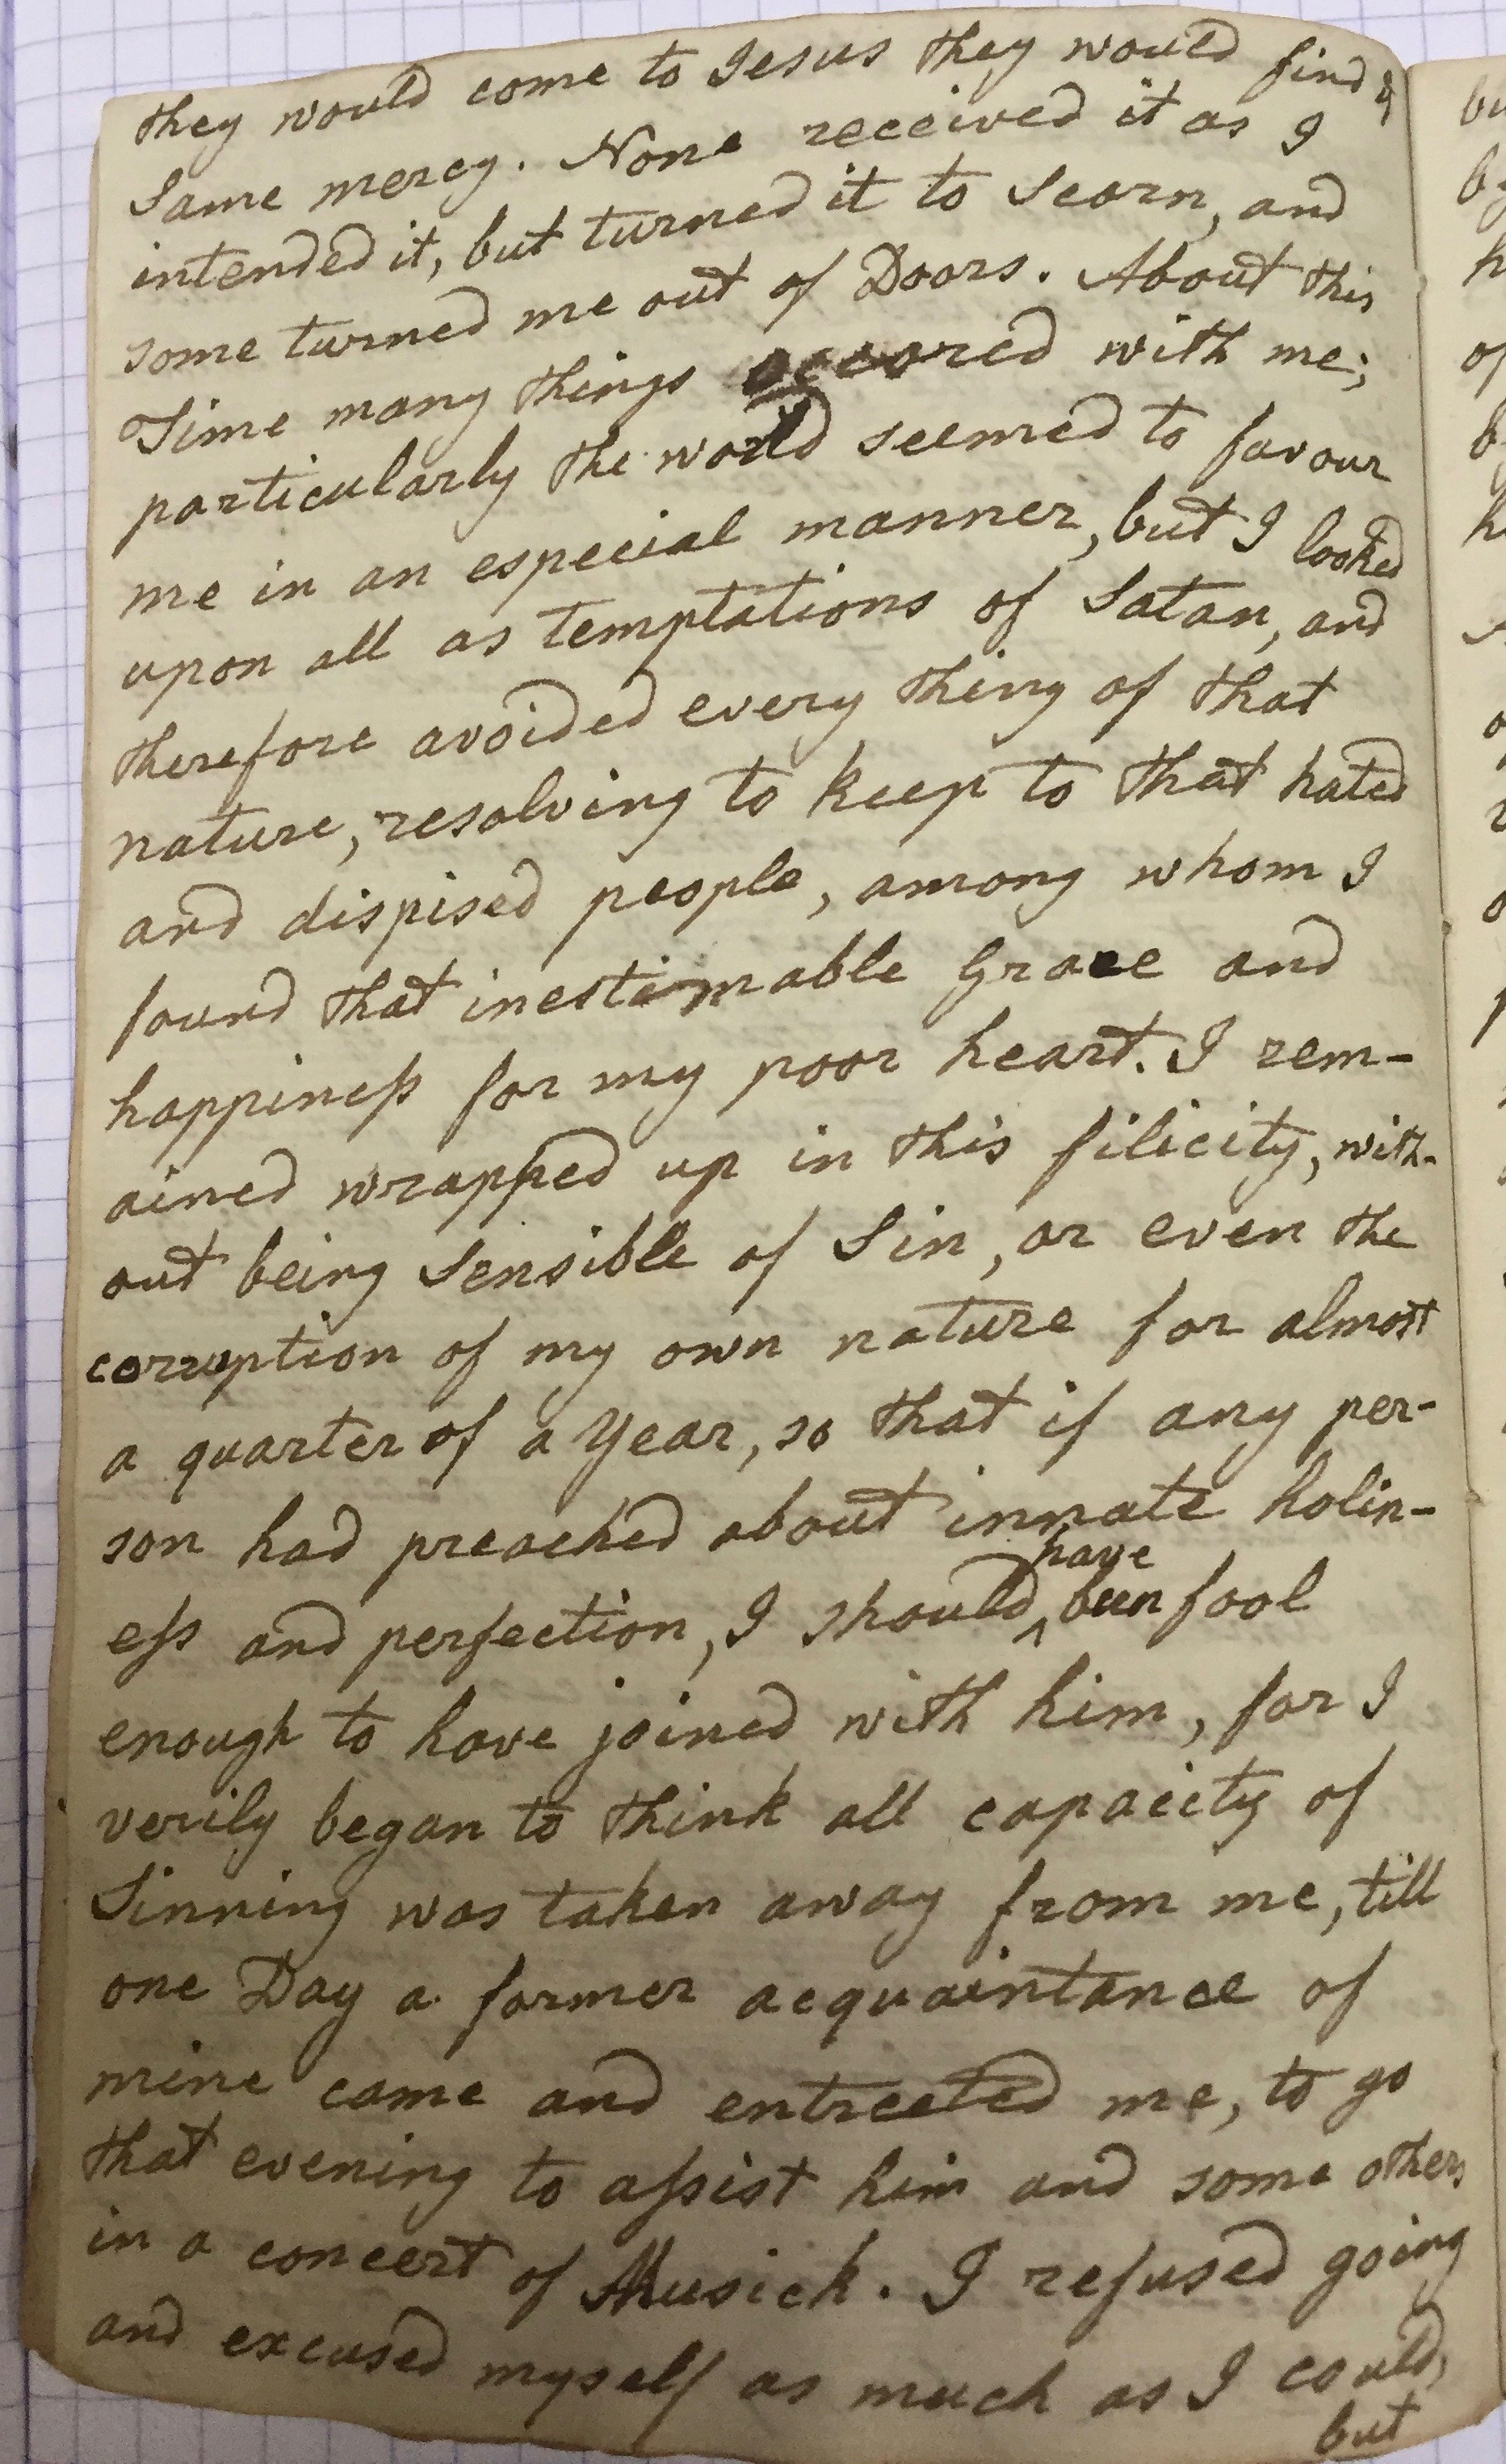 they would come to Jesus they would find ye
same mercy. None received it as I
intended it, but turned it to Scorn, and
some turned me out of Doors. About this
Time many things occored with me;
particularly the world seemed to favour
me in an especial manner, but I looked
upon all as temptations of Satan, and
therefore avoided every thing of that
nature, resolving to keep to that hated
and dispised people, among whom I
found that inestimable Grace and
happiness for my poor heart. I rem-
ained wrapped up in this filicity, with-
out being Sensible of Sin, or even the
corruption of my own nature for almost
a quarter of a Year, so that if any per-
son had preached about innate holin-
ess and perfection, I should ^ have been fool
enough to have joined with him, for I
verily began to think all capacity of
Sinning was taken away from me, till
one Day a former acquaintance of
mine came and entreeted me, to go
that evening to assist him and some others
in a concert of Musick. I refused going
and excused myself as much as I could,
but